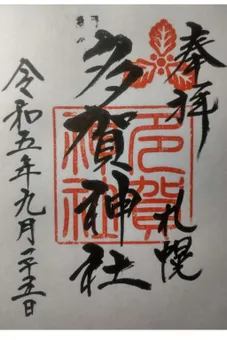 奉拝
札幌
多賀神社
多賀神社
令和五年九月二十五日